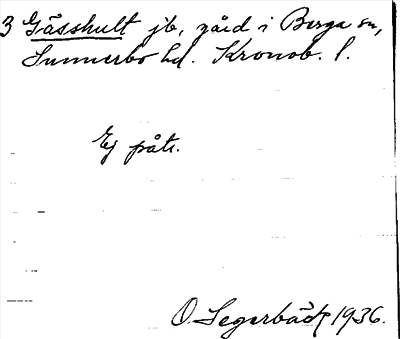 3 Gåsshult jb, gård i Berga sn,
Sunnerbo hd. Kronob. l.
Ej påtr.
O. Segerbäck 1936.